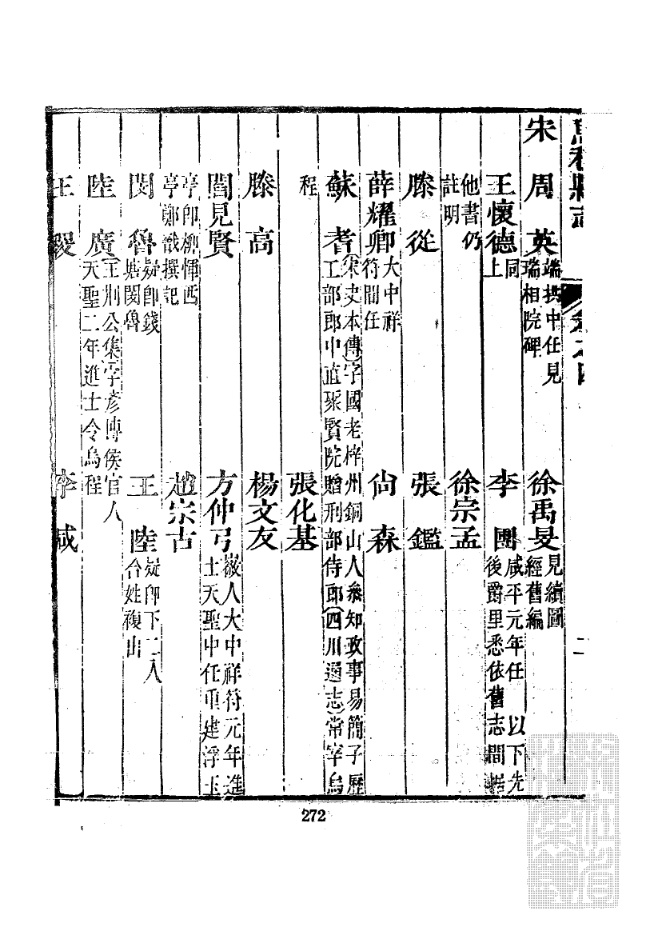 烏程縣志
卷之四
二
宋
周英 端拱中任見瑞相院碑
徐禹旻 見續圖經舊編
王懷德 同上
李團 咸平元年任 以下先後爵里悉依舊志間據
他書仍註明
徐宗孟
滕從
張鑑
薛耀卿 大中祥符間任
尙森
蘇耆 (宋史本傳)字國老梓州銅山人參知政事易簡子歷工部郎中直集賢院贈刑部侍郎(四川通志)常宰烏
程
張化基
滕高
楊文友
閻見賢
方仲弓 徽人大中祥符元年進士天聖中任重建浮玉
亭卽柳惲西亭鄭戩撰記
趙宗古
閔魯 疑卽錢塘閔魯
王陸 疑卽下二人合姓複出
陸廣 (王荆公集)字彥博侯官人天聖二年進士令烏程
王
李咸
272